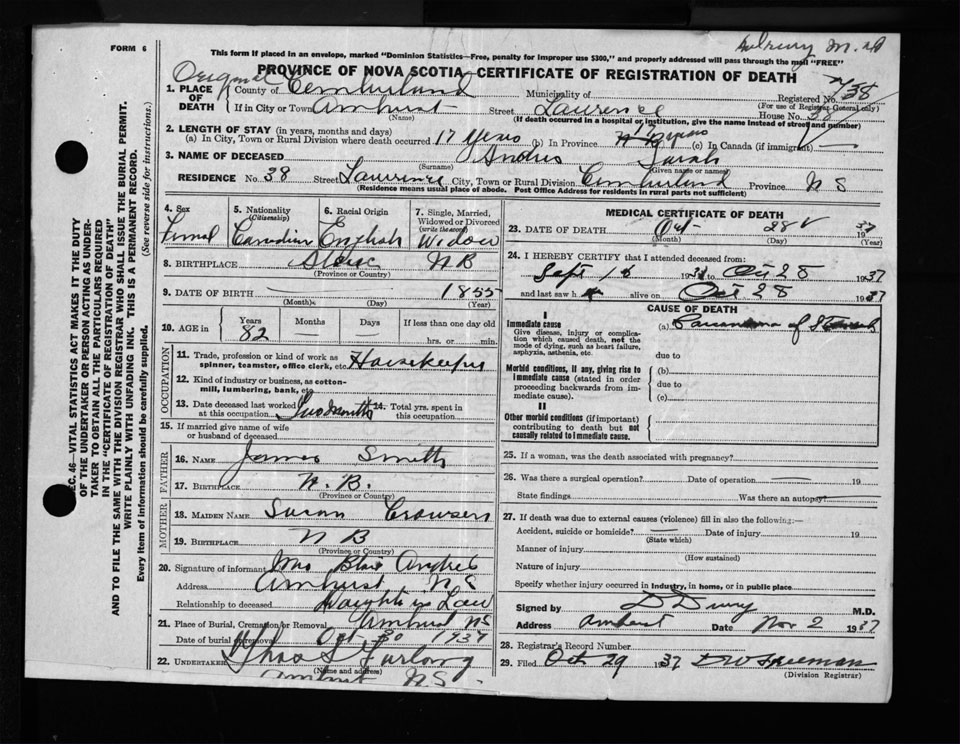 FORM 6
This form if placed in an envelope, marked "Dominion Statistics—Free, penalty for improper use $300," and properly addressed will pass through the mail "FREE"
PROVINCE OF NOVA SCOTIA—CERTIFICATE OF REGISTRATION OF DEATH
Original
1. PLACE OF DEATH County of Cumberland Municipality of Registered No. 738
(For use of Registrar-General only)
If in City or Town Amherst Street Lawrence House No. 38
(Name) (If death occurred in a hospital or institution, give the name instead of street and number)
2. LENGTH OF STAY (in years, months and days)
(a) In City, Town or Rural Division where death occurred 17 Years (b) In Province (c) In Canada (if immigrant) —
3. NAME OF DECEASED Andres Sarah
(Surname) (Given name or names)
RESIDENCE No. 38 Street Lawrence City, Town or Rural Division Cumberland Province N S
(Residence means usual place of abode. Post Office Address for residents in rural parts not sufficient)
4. Sex 5. Nationality (Citizenship) 6. Racial Origin 7. Single, Married, Widowed or Divorced (write the word)
Femal Canadian English Widow
8. BIRTHPLACE N B
(Province or Country)
9. DATE OF BIRTH 1855
(Month) (Day) (Year)
10. AGE in Years Months Days If less than one day
82 — hrs. or min.
OCCUPATION
11. Trade, profession or kind of work as spinner, teamster, office clerk, etc. Housekeeper
12. Kind of industry or business, as cotton-mill, lumbering, bank, etc.
13. Date deceased last worked at this occupation Two months 14. Total yrs. spent in this occupation
15. If married give name of wife or husband of deceased
FATHER
16. NAME James Smith
17. BIRTHPLACE N. B.
(Province or Country)
MOTHER
18. MAIDEN NAME Susan
19. BIRTHPLACE N B
(Province or Country)
20. Signature of informant Mrs Blair Andres
Address Amherst N S
Relationship to deceased Daughter in Law
21. Place of Burial, Cremation or Removal Amherst NS
Date of burial or removal Oct 30 1937
22. UNDERTAKER Thos S Furlong
(Name and address)
Amherst N.S.
MEDICAL CERTIFICATE OF DEATH
23. DATE OF DEATH Oct 28 1937
(Month) (Day) (Year)
24. I HEREBY CERTIFY that I attended deceased from:
Sept 1937 to Oct 28 1937
and last saw h alive on Oct 28 1937
CAUSE OF DEATH
I
Immediate cause (a) Carcinoma of Stomach
Give disease, injury or complication which caused death, not the mode of dying, such as heart failure, asphyxia, asthenia, etc. due to
Morbid conditions, if any, giving rise to immediate cause (stated in order proceeding backwards from immediate cause). (b)
due to
(c)
II
Other morbid conditions (if important) contributing to death but not causally related to immediate cause.
25. If a woman, was the death associated with pregnancy?
26. Was there a surgical operation? Date of operation — 19
State findings Was there an autopsy?
27. If death was due to external causes (violence) fill in also the following:—
Accident, suicide or homicide? Date of injury 19
(State which)
Manner of injury
(How sustained)
Nature of injury
Specify whether injury occurred in industry, in home, or in public place
Signed by D Drury M.D.
Address Amherst Date Nov 2 1937
28. Registrar's Record Number
29. Filed Oct 29 1937 Freeman
(Division Registrar)
SEC. 46—VITAL STATISTICS ACT MAKES IT THE DUTY
OF THE UNDERTAKER OR PERSON ACTING AS UNDER-
TAKER TO OBTAIN ALL THE PARTICULARS REQUIRED
IN THE "CERTIFICATE OF REGISTRATION OF DEATH"
AND TO FILE THE SAME WITH THE DIVISION REGISTRAR WHO SHALL ISSUE THE BURIAL PERMIT.
WRITE PLAINLY WITH UNFADING INK. THIS IS A PERMANENT RECORD.
Every item of information should be carefully supplied. (See reverse side for instructions.)